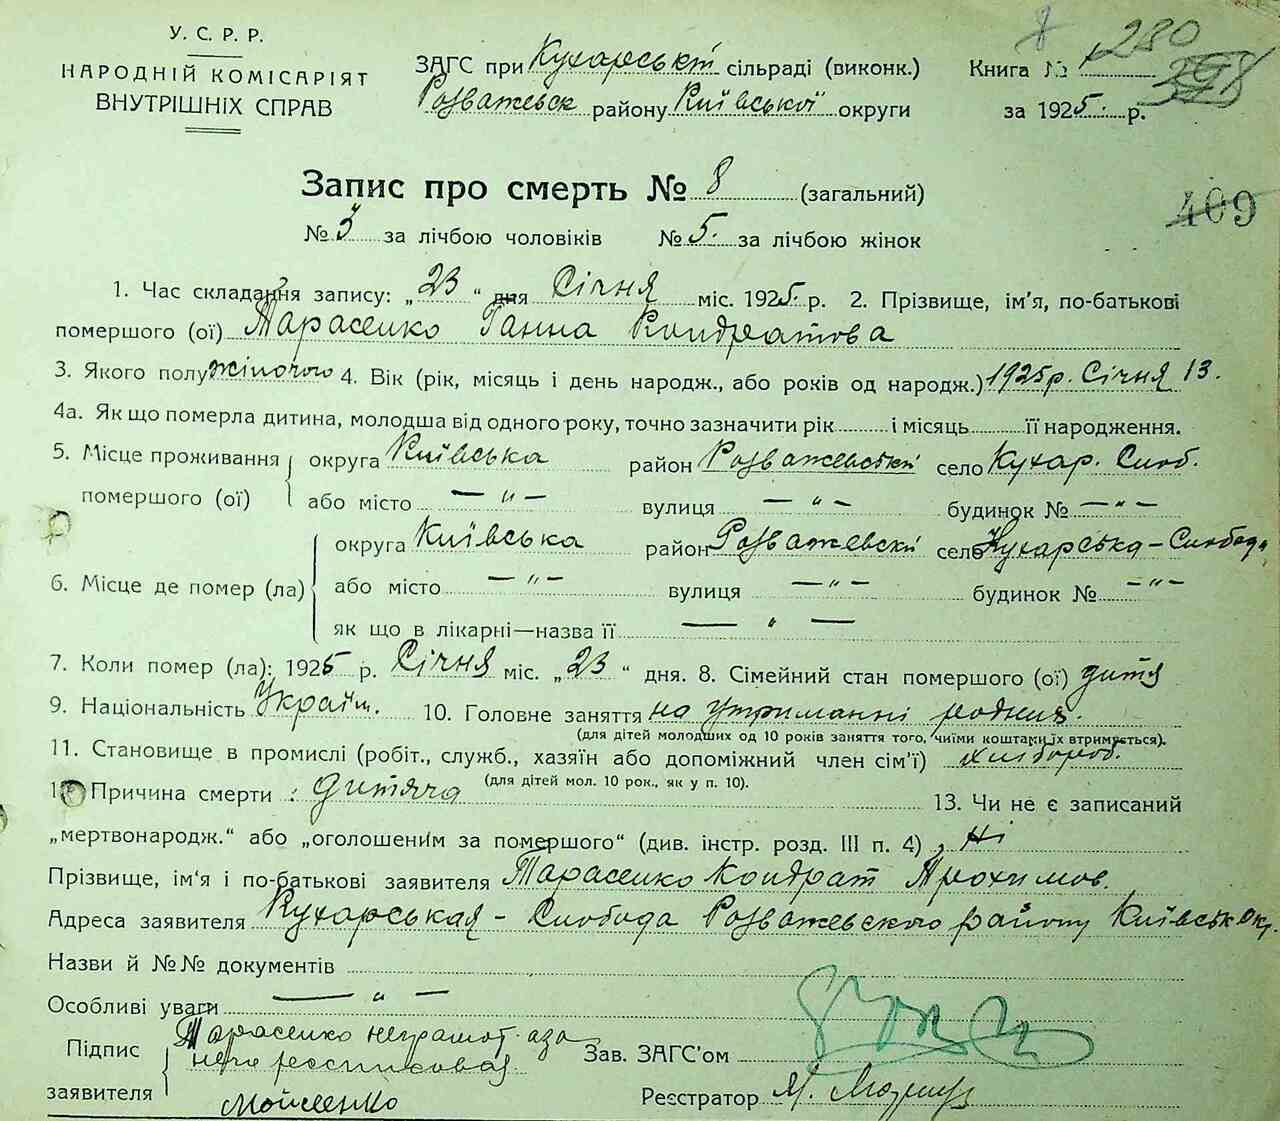 У. С. Р. Р.
НАРОДНІЙ КОМІСАРІЯТ
ВНУТРІШНІХ СПРАВ
ЗАГС при Кухарській сільраді (виконк.)
Розважевск району Київської округи
Книга № 1 280
за 1925 р.
Запис про смерть № 8 (загальний)
409
№ 3 за лічбою чоловіків № 5. за лічбою жінок
1. Час складання запису: „23“ дня Січня міс. 1925 р. 2. Прізвище, ім'я, по-батькові
помершого (ої) Тарасенко Ганна Кондратова
3. Якого полу жіночого 4. Вік (рік, місяць і день народж., або років од народж.) 1925 р. Січня 13.
4а. Як що померла дитина, молодша від одного року, точно зазначити рік і місяць її народження.
5. Місце проживання помершого (ої) округа Київська район Розважевський село Кухар. Слоб.
або місто — „ — вулиця — „ — будинок № — „ —
6. Місце де помер (ла) округа Київська район Розважевскй село Кухарська-Слобода
або місто — „ — вулиця — „ — будинок № — „ —
як що в лікарні—назва її — „ —
7. Коли помер (ла): 1925 р. Січня міс. „23“ дня. 8. Сімейний стан помершого (ої) дитя
9. Національність Україн. 10. Головне заняття на утриманні родния.
(для дітей молодших од 10 років заняття того, чиїми коштами їх втримується).
11. Становище в промислі (робіт., служб., хазяїн або допоміжний член сім'ї) хлібороб.
(для дітей мол. 10 рок., як у п. 10).
12 Причина смерти : дитяча 13. Чи не є записаний
„мертвонародж.“ або „оголошеним за помершого“ (див. інстр. розд. III п. 4) Ні
Прізвище, ім'я і по-батькові заявителя Тарасенко Кондрат Трохимов.
Адреса заявителя Кухарськая - Слобода Розважевского району Київськ Окр.
Назви й №№ документів
Особливі уваги — „ —
Підпис заявителя Тарасенко неграмот. а за
него росписовая
Мойсеенко
Зав. ЗАГС'ом
Реєстратор М.